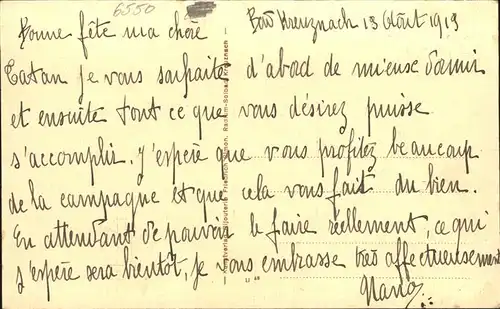 6550
Bonne fête ma chère Bad Kreuznach 13 Août 1919
Tatan je vous souhaite d'abord de mieux dormir
et ensuite tout ce que vous désirez puisse
s'accomplir. J'espère que vous profitez beaucoup
de la campagne et que cela vous fait du bien.
En attendant de pouvoir le faire réellement, ce qui
j'espère sera bientôt, je vous embrasse très affectueusement
Nano
Friedrich Simon, Radium-Solbad Kreuznach